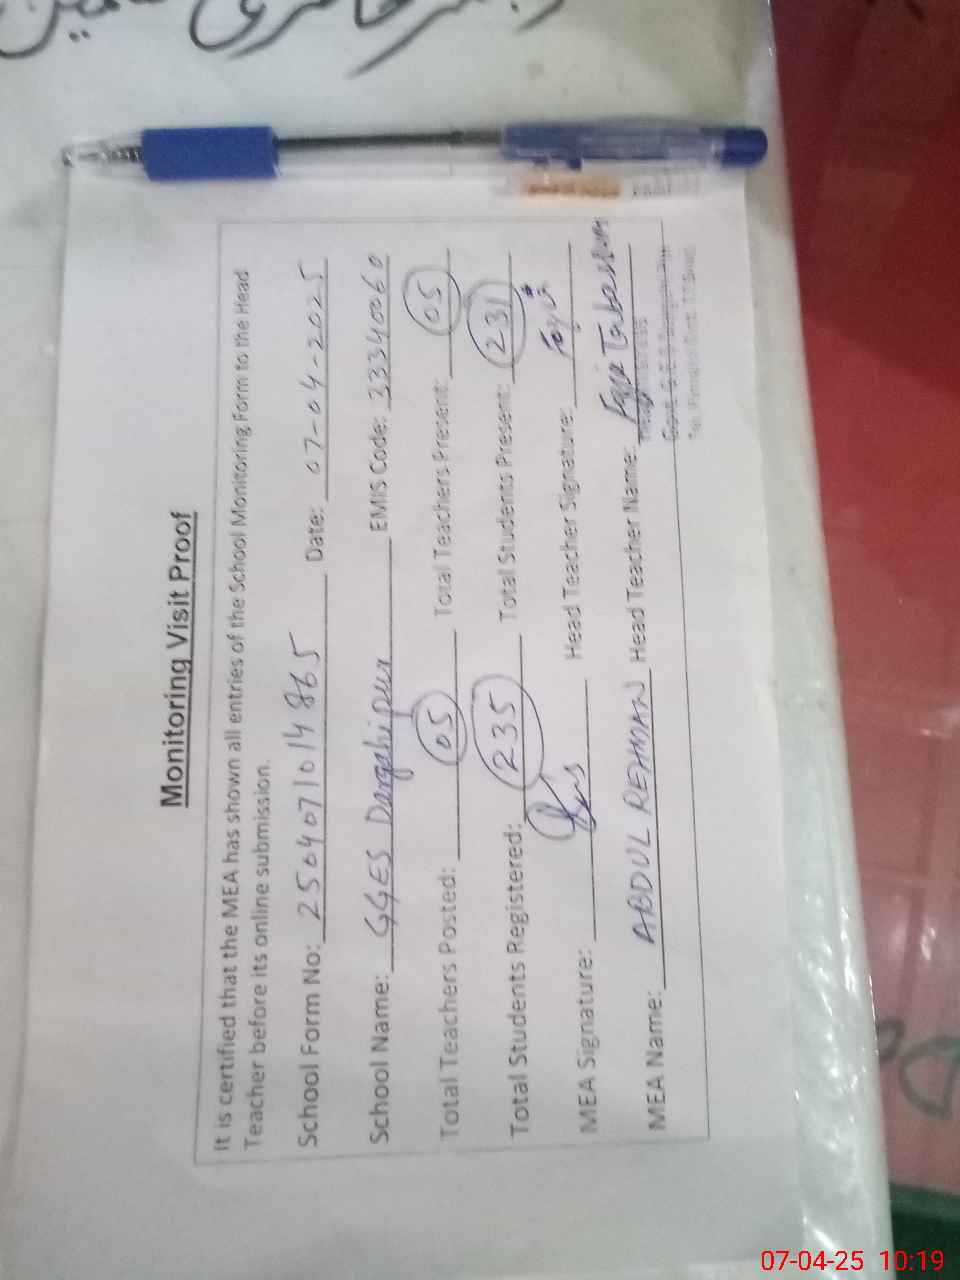 Monitoring Visit Proof
It is certified that the MEA has shown all entries of the School Monitoring Form to the Head
Teacher before its online submission.
School Form No: 2504071014865 Date: 07-04-2025
School Name: GGES Dargahipur EMIS Code: 33340060
Total Teachers Posted: 05 Total Teachers Present: 05
Total Students Registered: 235 Total Students Present: 231
MEA Signature: Head Teacher Signature:
MEA Name: ABDUL REHMAN Head Teacher Name: Tabassum
07-04-25 10:19